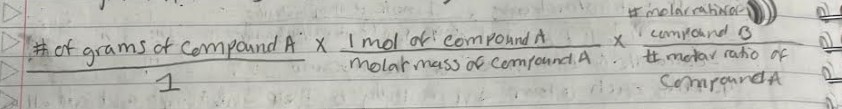 # molar ratio of
# of grams of compound A x 1 mol of compound A x compound B
1 molar mass of compound A # molar ratio of
compound A